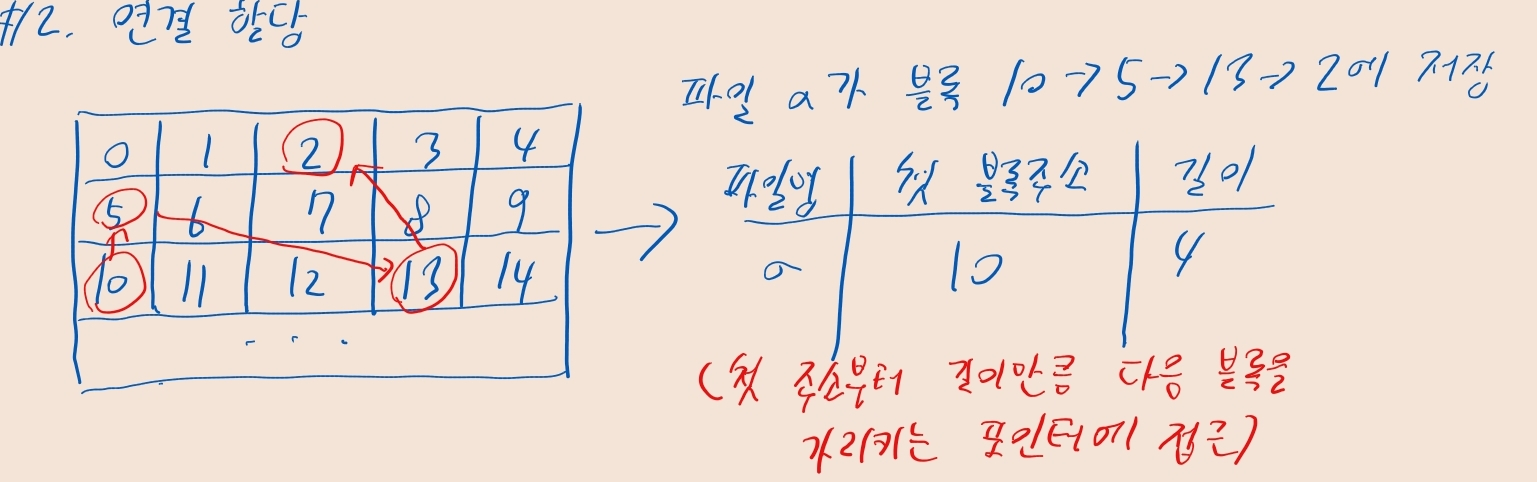 #2. 연결 할당
파일 a가 블록 10 → 5 → 13 → 2에 저장
0 1 2 3 4
5 6 7 8 9
10 11 12 13 14
...
파일명 첫 블록주소 길이
a 10 4
(첫 주소부터 길이만큼 다음 블록을
가리키는 포인터에 접근)